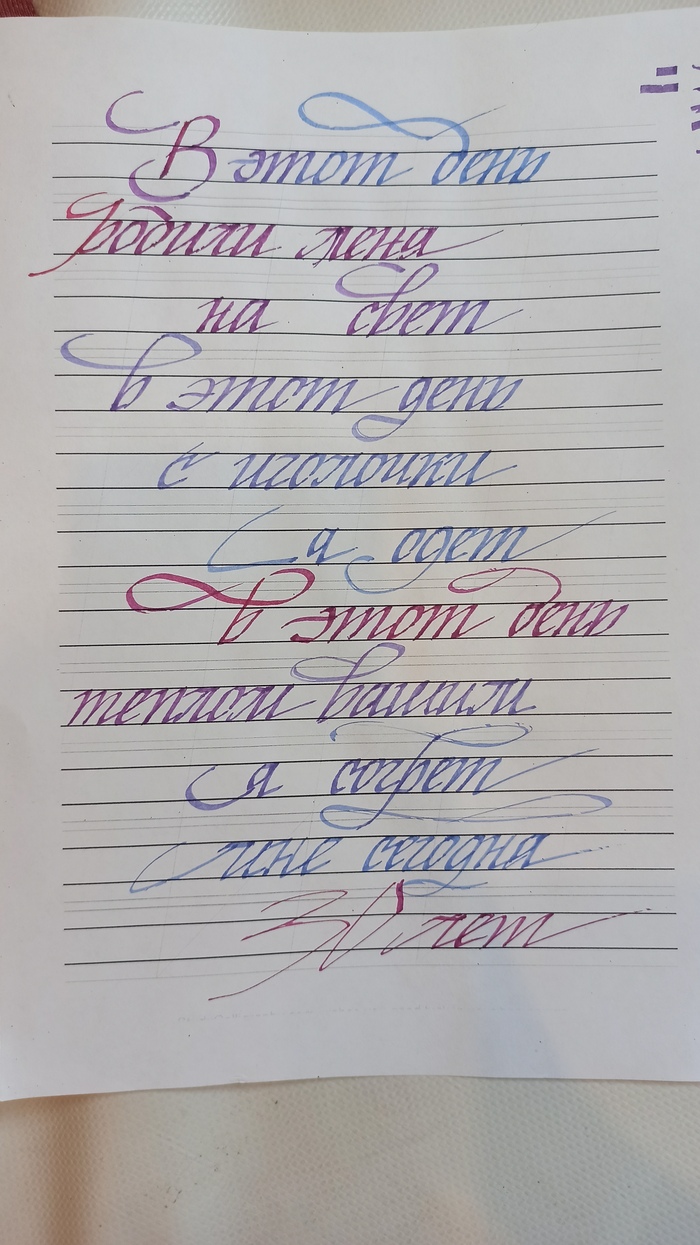 В этот день
родили меня
на свет
в этот день
с иголочки
я одет
в этот день
теплом вашим
я согрет
мне сегодня
30 лет